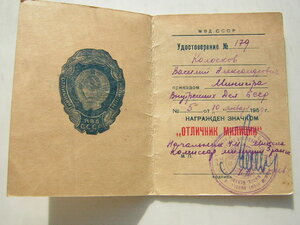 МВД СССР
Удостоверение № 179
Колосков
Василий Александрович
приказом Министра
Внутренних Дел
№ 5 от 10 января
НАГРАЖДЕН ЗНАЧКОМ
"ОТЛИЧНИК МИЛИЦИИ"
Комиссар милиции 3 ранга
М. П.
подпись
МВД
СССР